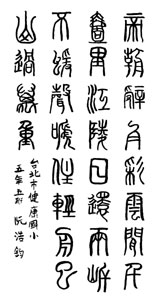 帝朝辭白彩雲間千
里江陵日還兩岸
不猿聲啼住輕舟已
山過萬重
台北市健康國小
五年五班 阮浩鈞